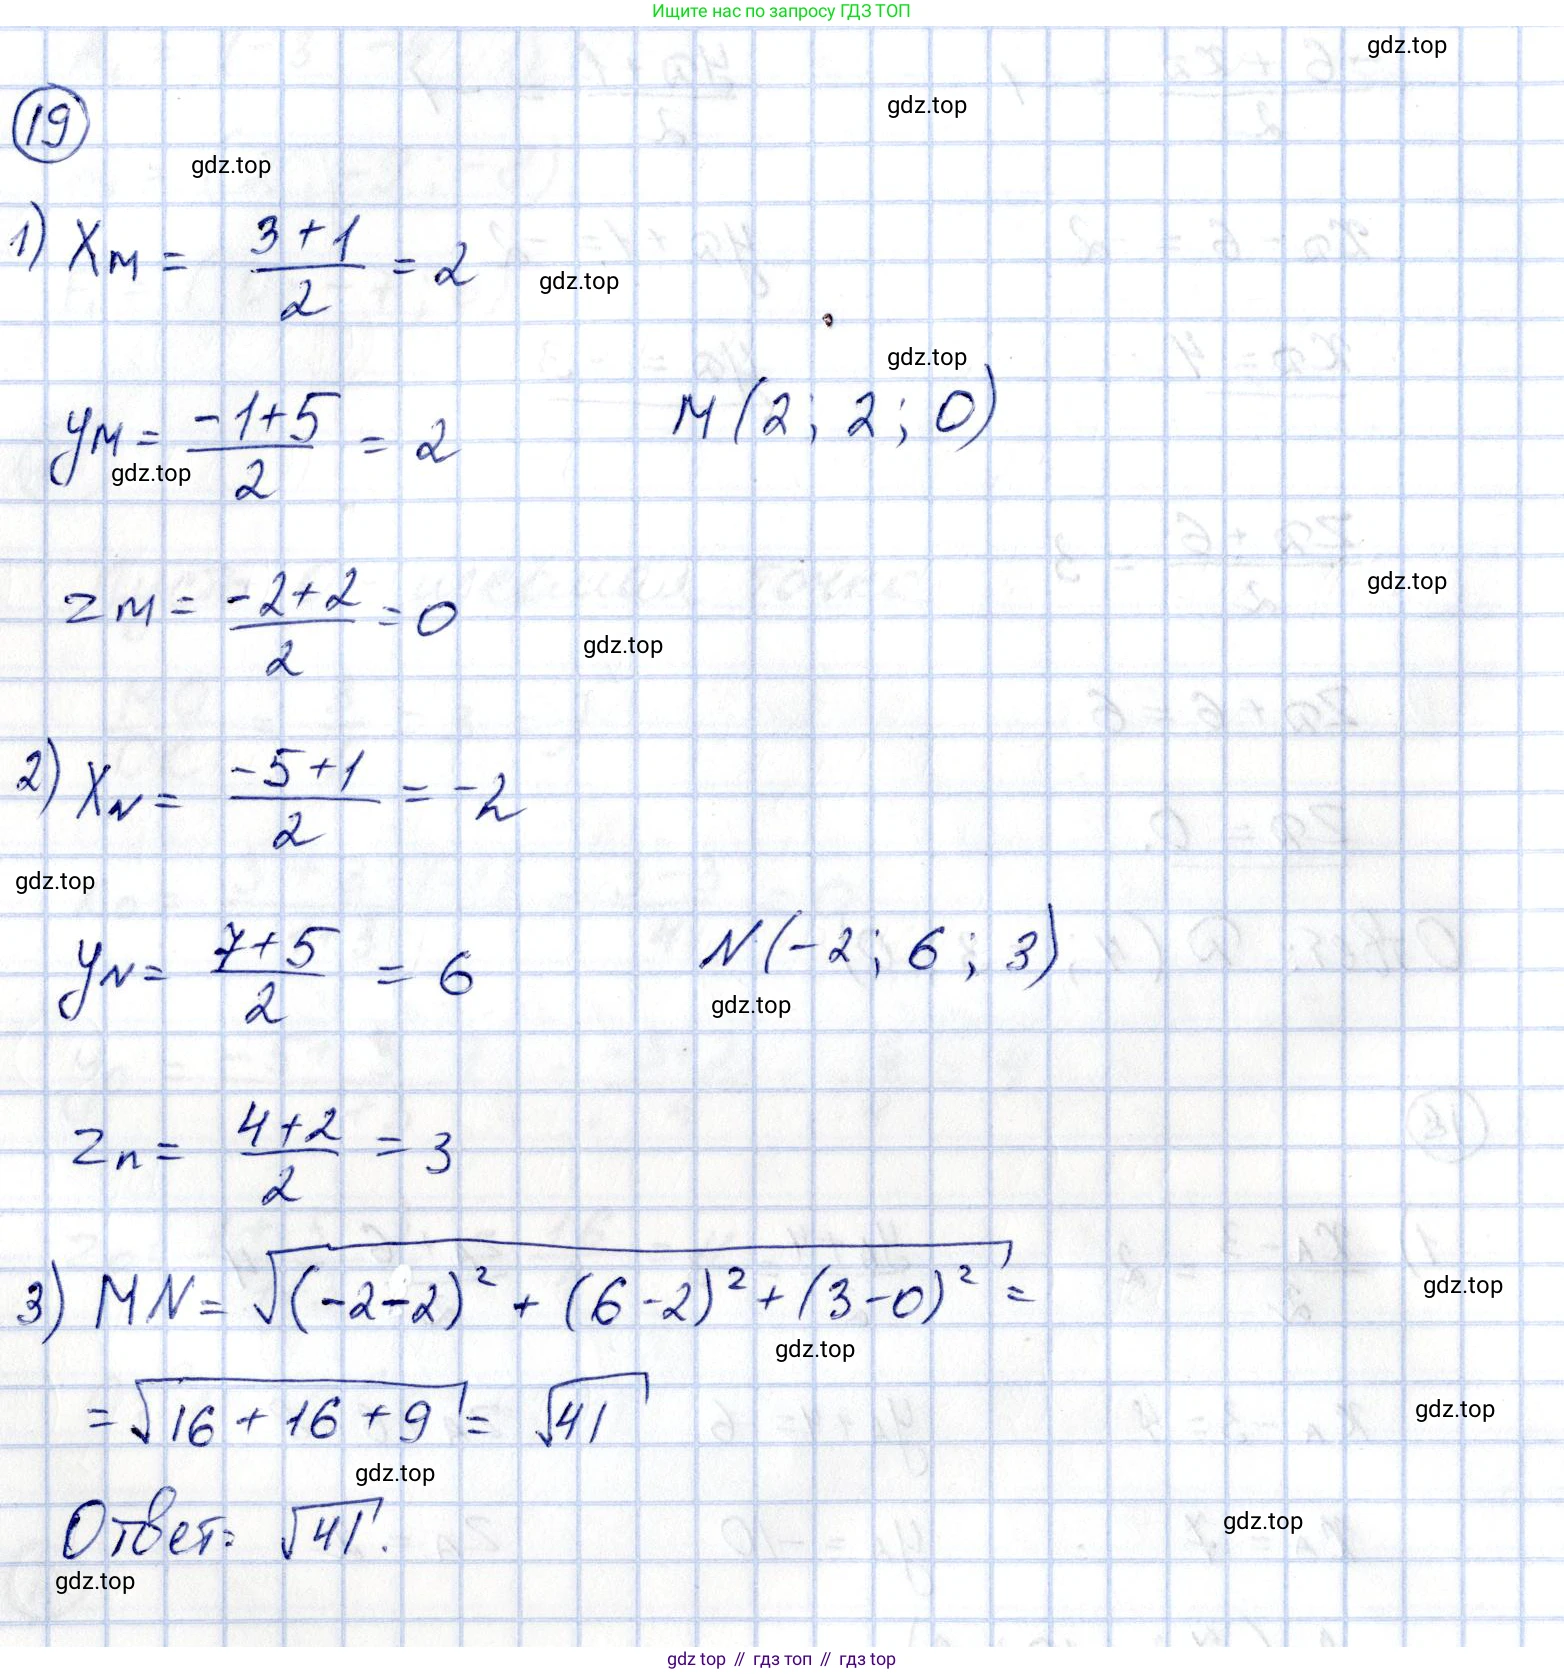 Ищите нас по запросу ГДЗ ТОП
gdz.top
gdz.top
19
gdz.top
1) XM = (3+1)/2 = 2
gdz.top
gdz.top
yM = (-1+5)/2 = 2
M(2; 2; 0)
gdz.top
zM = (-2+2)/2 = 0
gdz.top
gdz.top
2) XN = (-5+1)/2 = -2
gdz.top
yN = (7+5)/2 = 6
N(-2; 6; 3)
gdz.top
zn = (4+2)/2 = 3
3) MN = √((-2-2)² + (6-2)² + (3-0)²) =
gdz.top
gdz.top
= √(16+16+9) = √41
gdz.top
gdz.top
Ответ: √41.
gdz.top
gdz.top
gdz top // гдз топ // gdz top